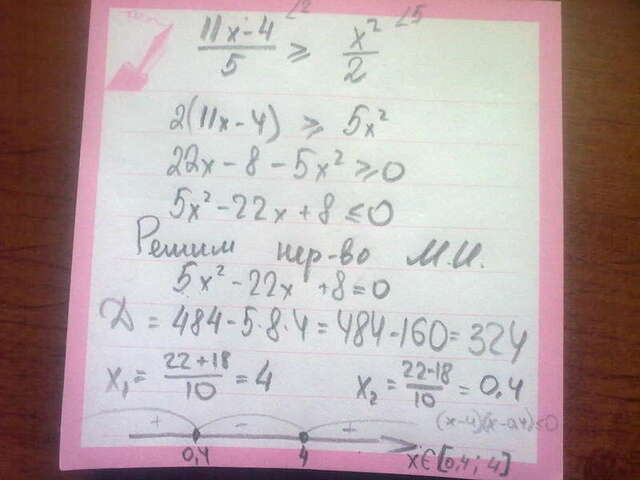 (11x-4)/5 ∠2 ≥ x²/2 ∠5
2(11x-4) ≥ 5x²
22x-8-5x² ≥ 0
5x²-22x+8 ≤ 0
Решим нер-во М.И.
5x²-22x+8=0
D = 484-5·8·4 = 484-160 = 324
x₁ = (22+18)/10 = 4 x₂ = (22-18)/10 = 0,4
(x-4)(x-0,4)≤0
+ - +
0,4 4 x∈[0,4; 4]